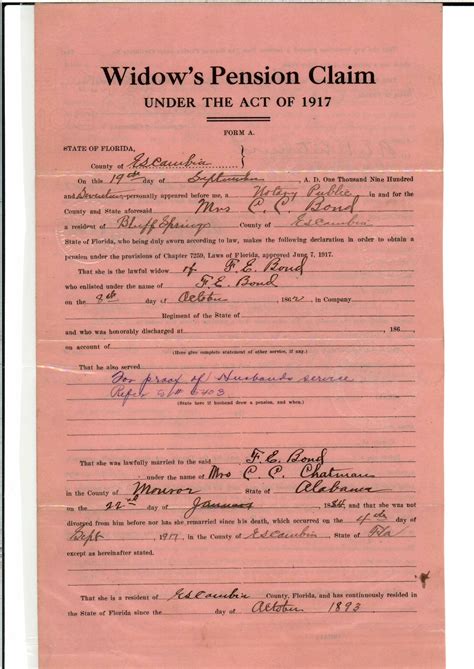 Widow's Pension Claim
UNDER THE ACT OF 1917
FORM A.
STATE OF FLORIDA,
County of Escambia
On this 19th day of September A. D. One Thousand Nine Hundred
and Seventeen personally appeared before me, a Notary Public in and for the
County and State aforesaid Mrs C. C. Bond
a resident of Bluff Springs County of Escambia
State of Florida, who being duly sworn according to law, makes the following declaration in order to obtain a
pension under the provisions of Chapter 7259, Laws of Florida, approved June 7, 1917.
That she is the lawful widow of F. E. Bond
who enlisted under the name of F. E. Bond
on the 8th day of October 1862 in Company
Regiment of the State of
and who was honorably discharged at , 186
on account of
(Here give complete statement of other service, if any.)
That he also served
For proof of Husbands service
Refer S # 5403
(State here if husband drew a pension, and when.)
That she was lawfully married to the said F. E. Bond
under the name of Mrs C. C. Chatman
in the County of Monror State of Alabama
on the 22nd day of January 1884, and that she was not
divorced from him before nor has she remarried since his death, which occurred on the 4th day of
Sept 1917, in the County of Escambia State of Fla
except as hereinafter stated.
That she is a resident of Escambia County, Florida, and has continuously resided in
the State of Florida since the day of October 1893